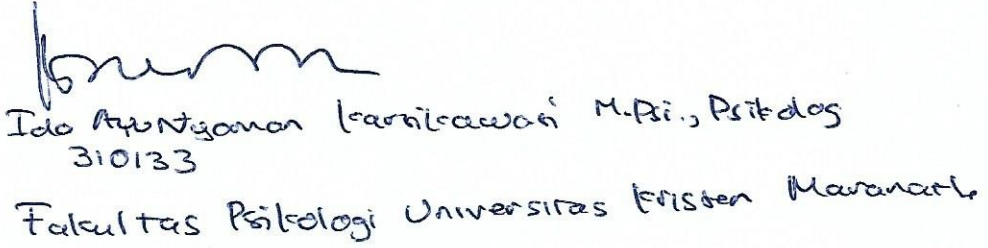 Ida Ayu Nyoman Kartikawati M.Psi., Psikolog
310133
Fakultas Psikologi Universitas Kristen Maranatha